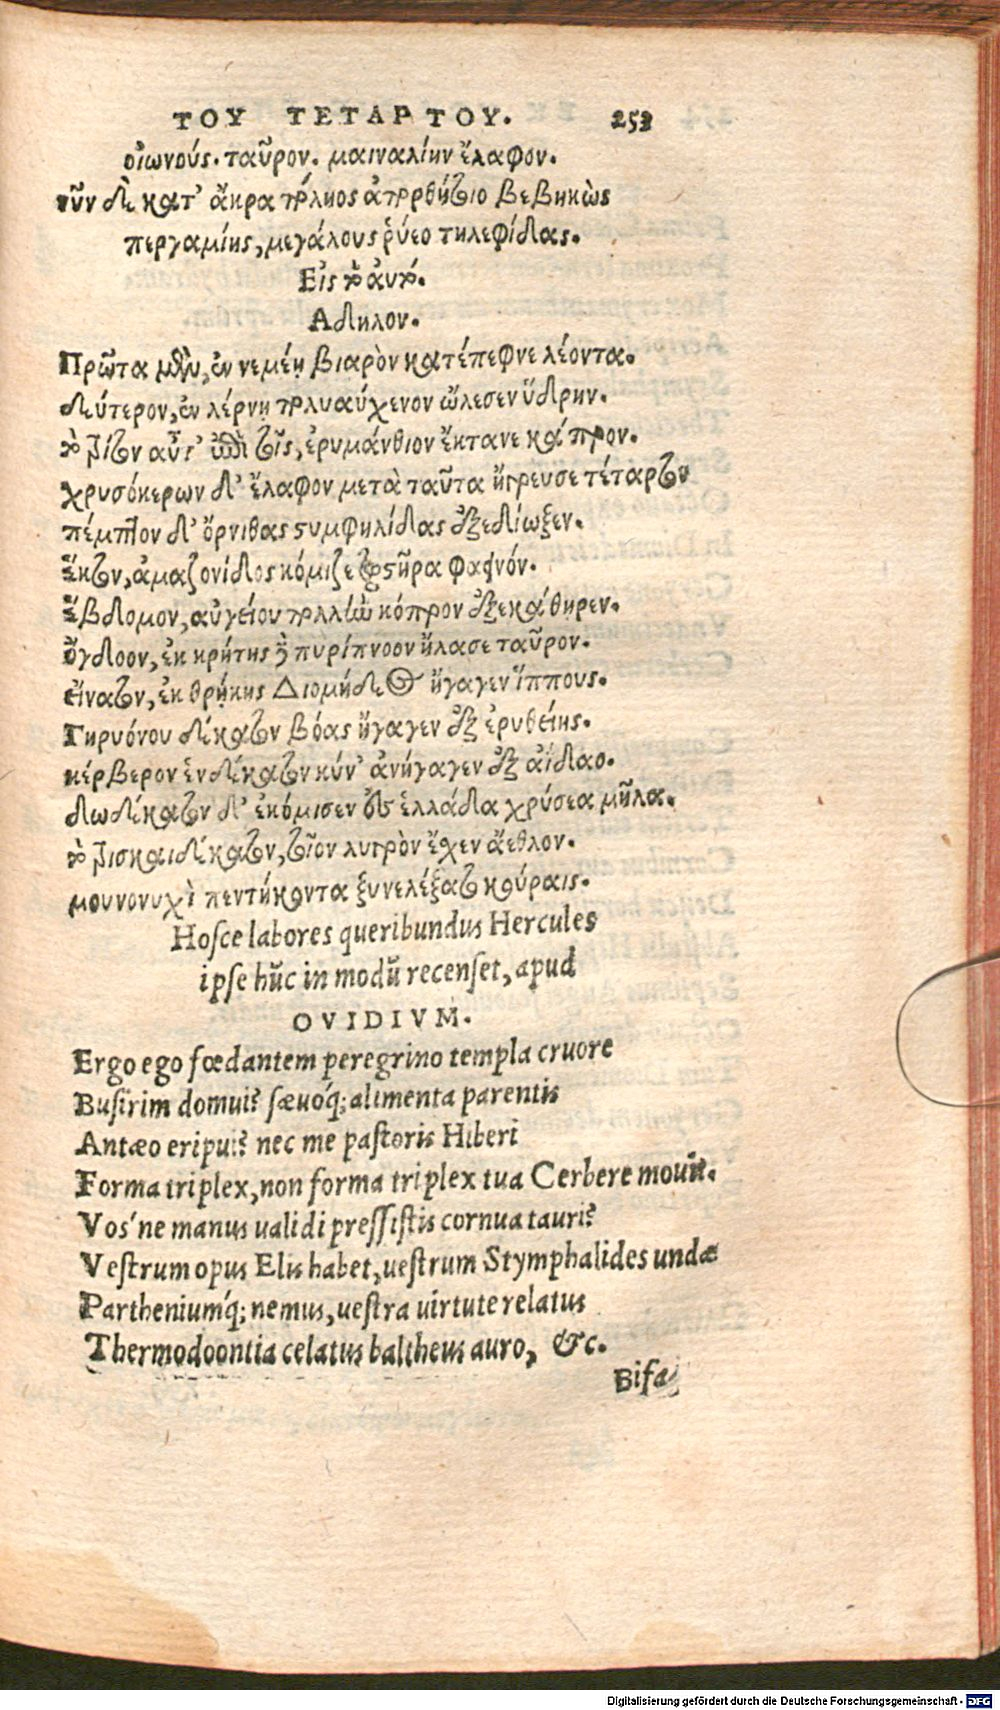 ΤΟΥ ΤΕΤΑΡΤΟΥ. 253
οἰωνούς. ταῦρον. μαιναλίην ἔλαφον.
νῦν δὲ κατ' ἄκρα πόληος ἀπορθήτοιο βεβηκὼς
περγαμίης, μεγάλους ῥύεο τηλεφίδας.
Εἰς τὸ αὐτό.
Αδηλον.
Πρῶτα μὲν, ἐν νεμέῃ βιαρὸν κατέπεφνε λέοντα.
δεύτερον, ἐν λέρνῃ πολυαύχενον ὤλεσεν ὕδρην.
τὸ τρίτον αὖτ' ἐπὶ τοῖς, ἐρυμάνθιον ἔκτανε κάπρον.
χρυσόκερων δ' ἔλαφον μετὰ ταῦτα ἤγρευσε τέταρτον
πέμπτον δ' ὄρνιθας στυμφηλίδας ἐξεδίωξεν.
ἕκτον, ἀμαζονίδος κόμιζε ζωστῆρα φαεινόν.
ἕβδομον, αὐγείου πολλὴν κόπρον ἐξεκάθηρεν.
ὄγδοον, ἐκ κρήτης δὲ πυρίπνοον ἤλασε ταῦρον.
εἵνατον, ἐκ θρήκης Διομήδεος ἤγαγεν ἵππους.
Γηρυόνου δέκατον βόας ἤγαγεν ἐξ ἐρυθείης.
κέρβερον ἑνδέκατον κύν' ἀνήγαγεν ἐξ ἀίδαο.
δωδέκατον δ' ἐκόμισεν ἐς ἑλλάδα χρύσεα μῆλα.
τὸ τρισκαιδέκατον, τοῖον λυγρὸν ἔχεν ἄεθλον.
μουνονυχὶ πεντήκοντα ξυνελέξατο κούραις.
Hosce labores queribundus Hercules
ipse hūc in modū recenset, apud
OVIDIVM.
Ergo ego fœdantem peregrino templa cruore
Busirim domui? sæuoq́; alimenta parentis
Antæo eripui? nec me pastoris Hiberi
Forma triplex, non forma triplex tua Cerbere mouit.
Vos'ne manus ualidi pressistis cornua tauri?
Vestrum opus Elis habet, uestrum Stymphalides undæ
Partheniumq́; nemus, uestra uirtute relatus
Thermodoontia celatus baltheus auro, &c.
Bifa
Digitalisierung gefördert durch die Deutsche Forschungsgemeinschaft - DFG